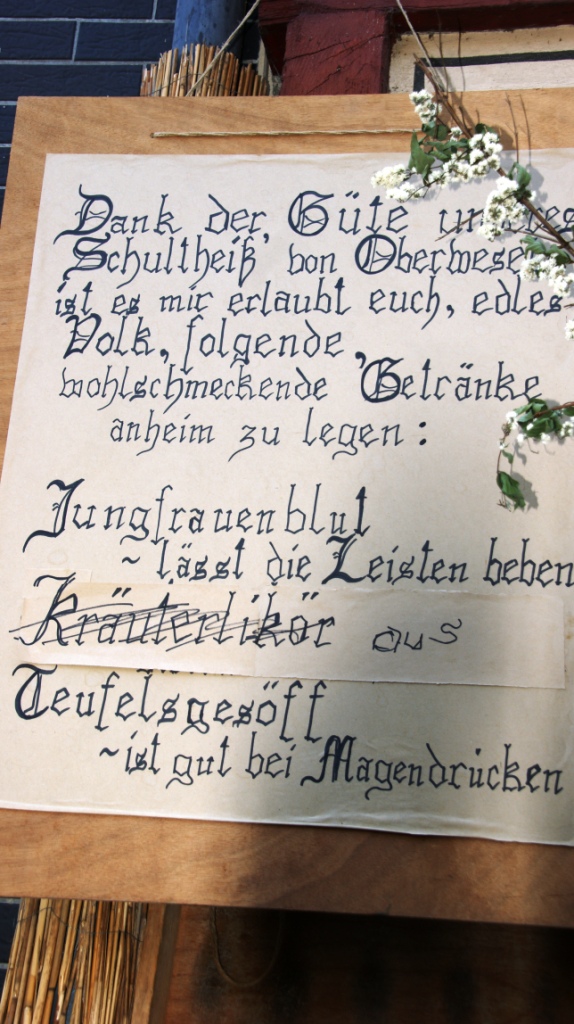 Dank der Güte unseres
Schultheiß' von Oberwesel
ist es mir erlaubt euch, edles
Volk, folgende,
wohlschmeckende Getränke
anheim zu legen:
Jungfrauenblut
~ lässt die Leisten beben
Kräuterlikör aus
Teufelsgesöff
~ist gut bei Magendrücken